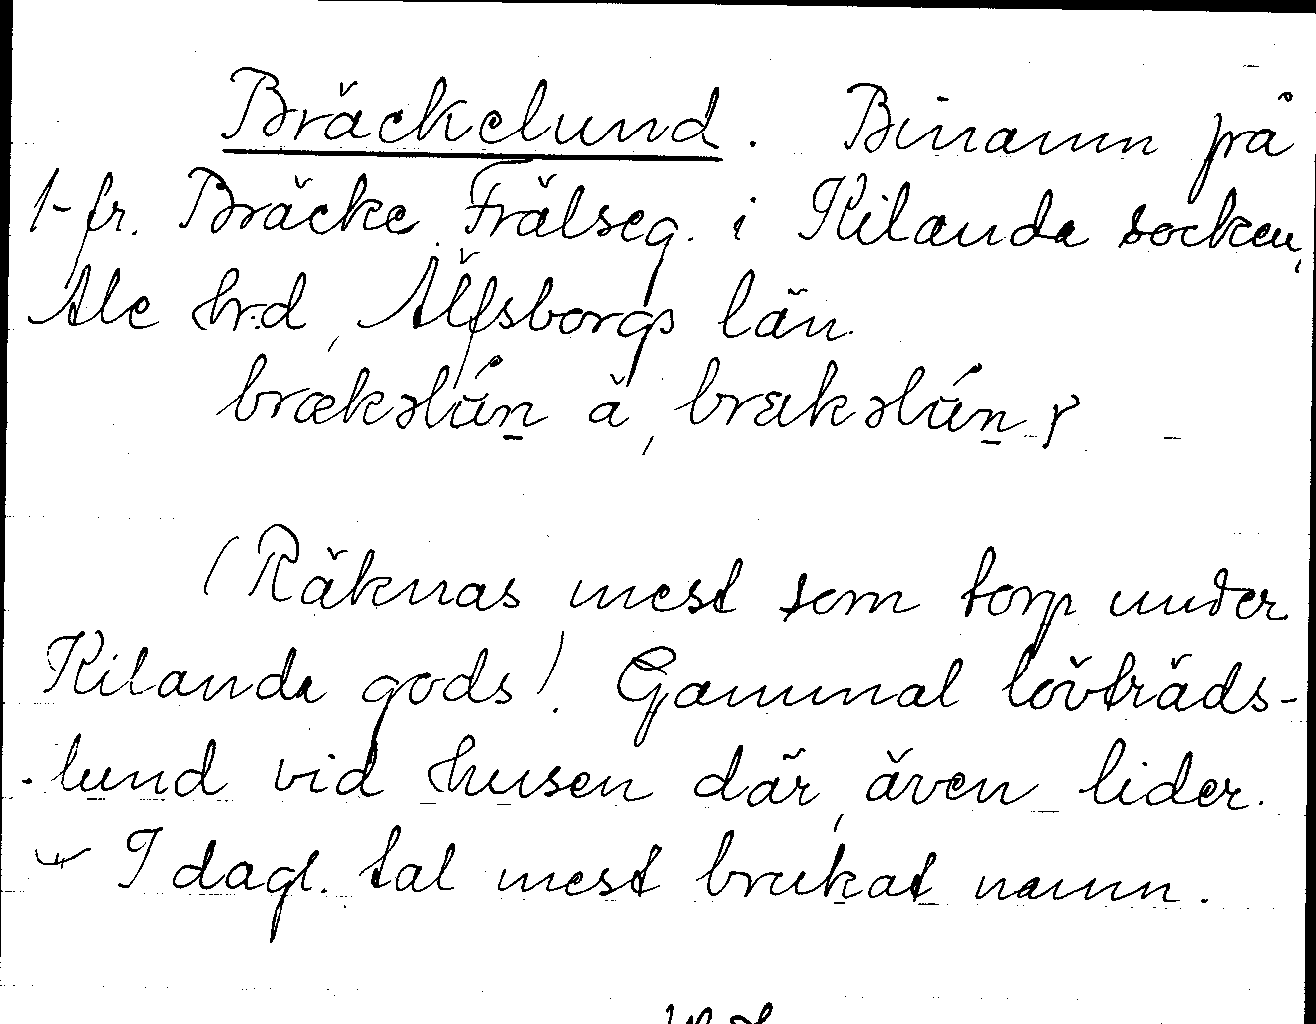 Bräckelund. Binamn på
1-fr. Bräcke Frälseg. i Kilanda socken,
Ale hrd, Älfsborgs län.
brækəlún̠ å, brækəlún̠
(Räknas mest som torp under
Kilanda gods). Gammal lövträds-
-lund vid husen där, även lider.
I dagl. tal mest brukat namn.